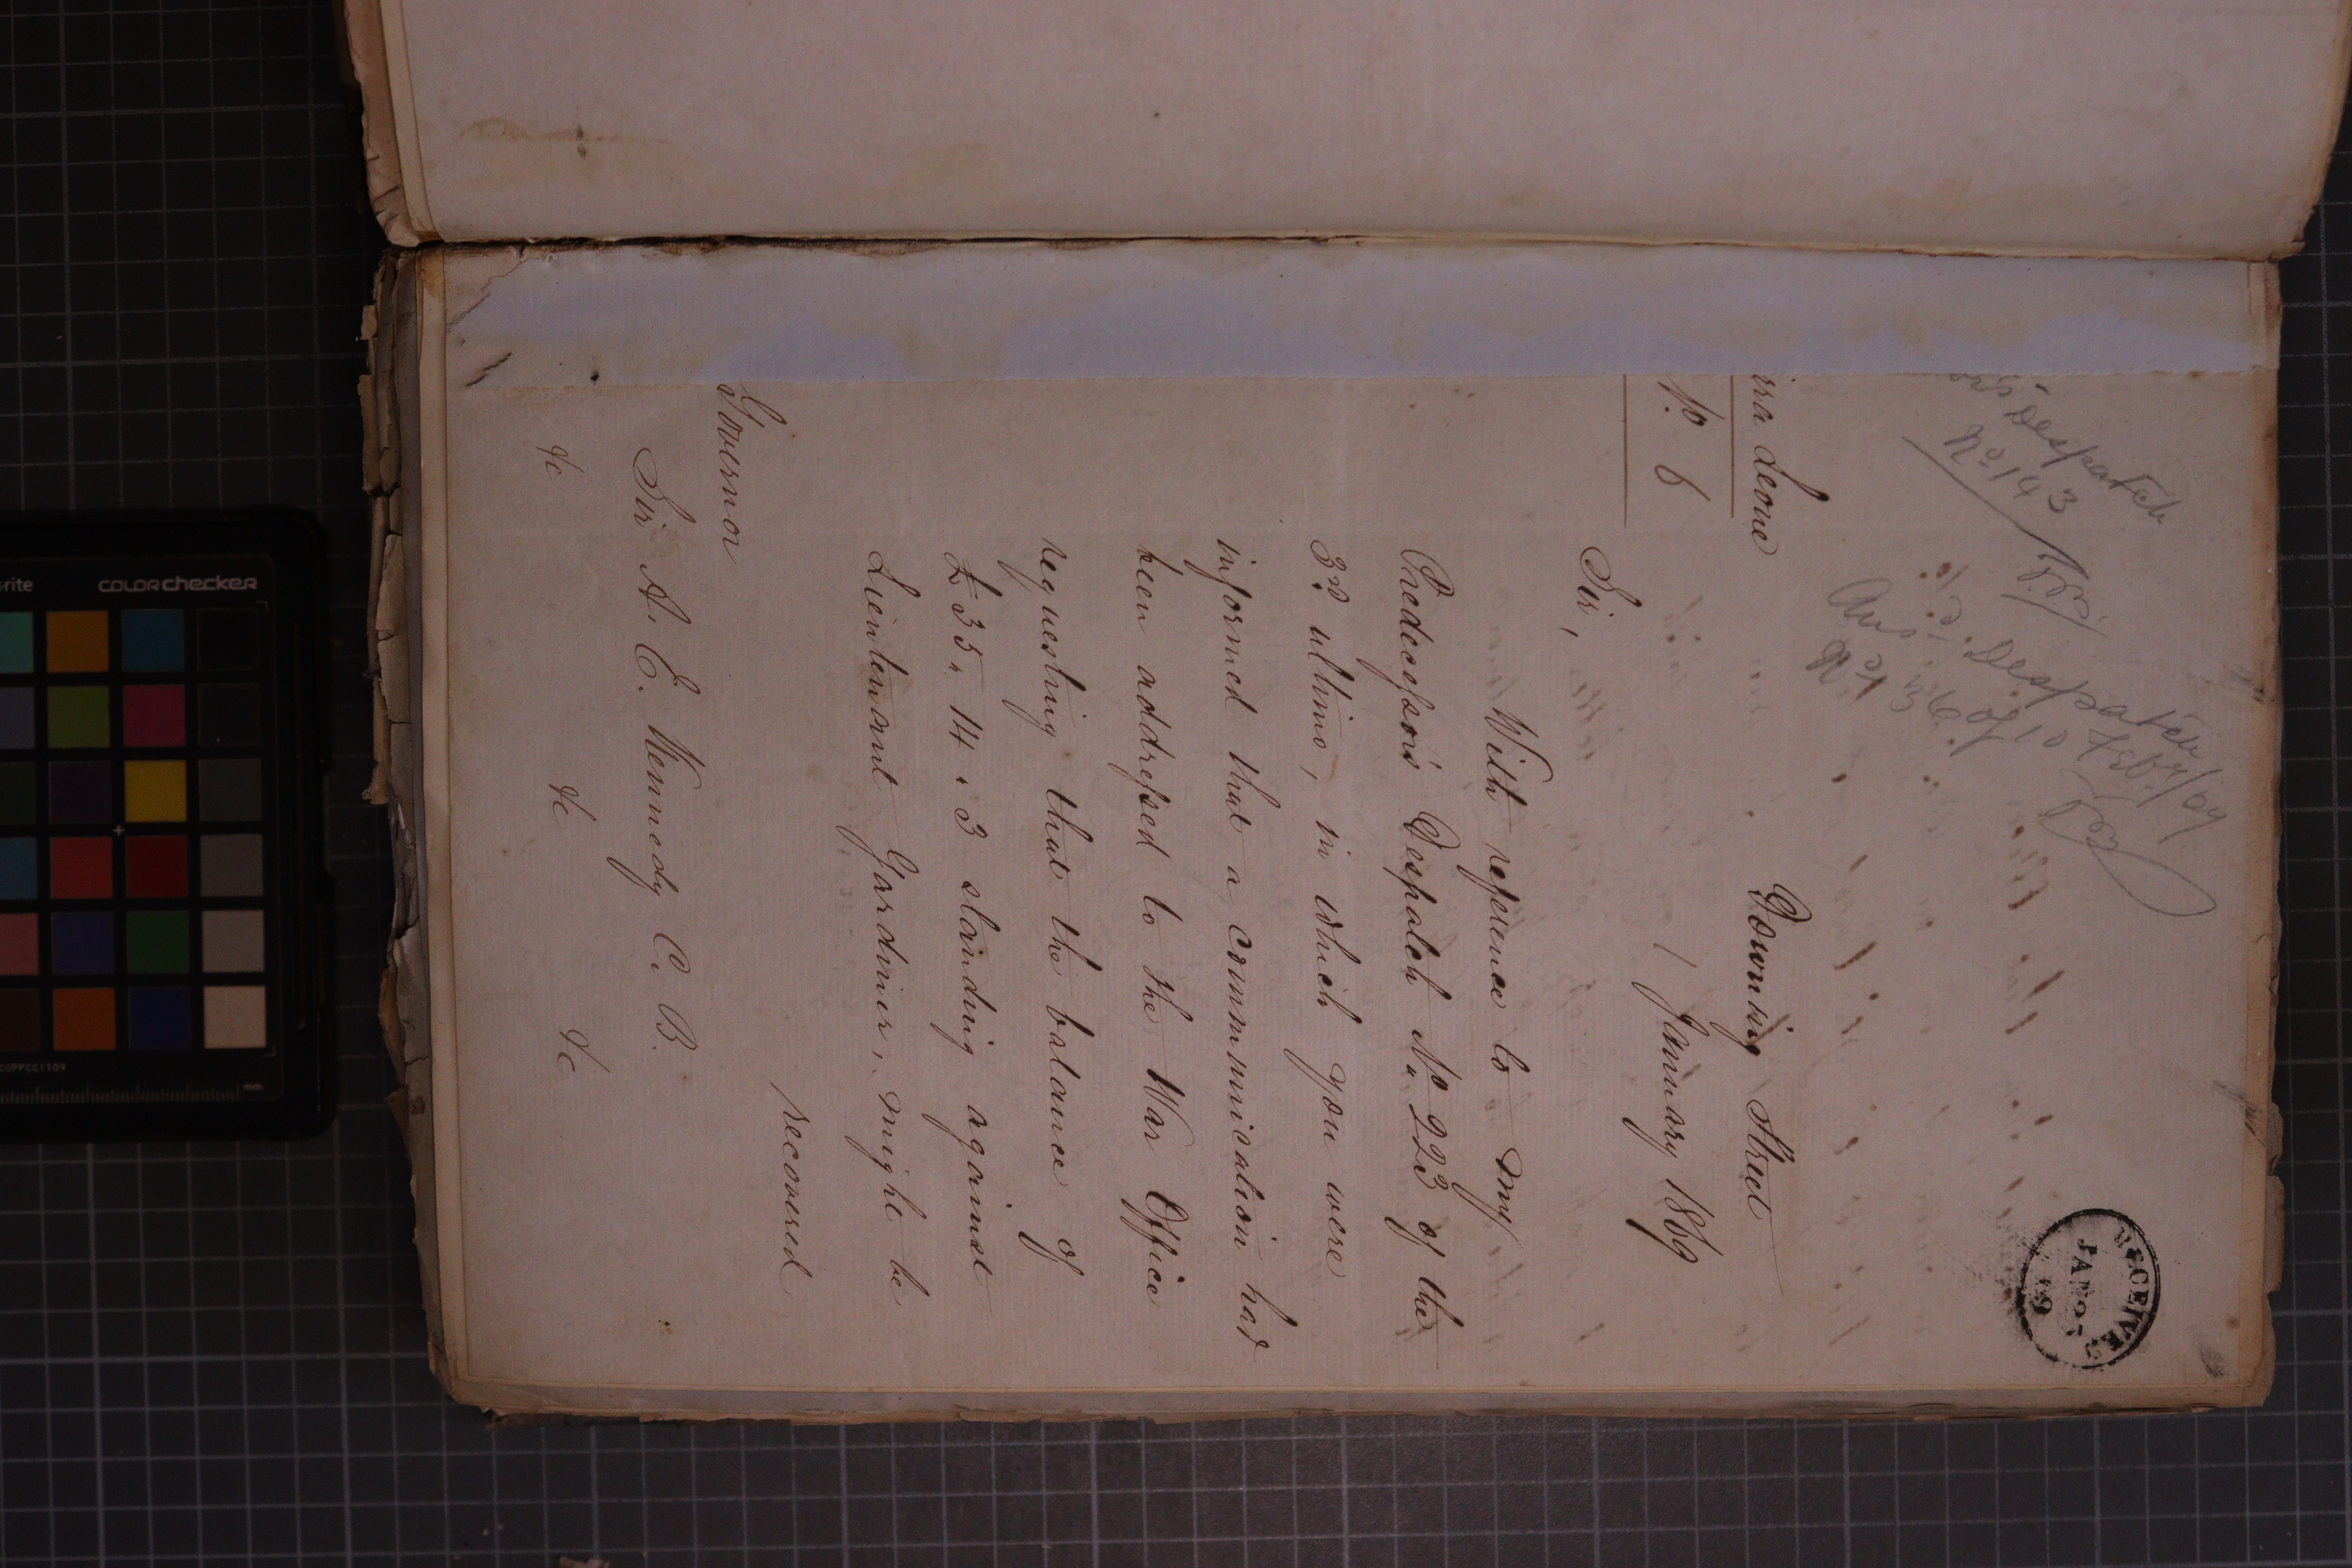 RECEIVED
JAN 0
69
Despatch
No 143
Ans. Despatch
No 36 of 10 Feby/69
Downing Street
rra Leone
1 January 1869
No. 6
Sir,
With reference to my
Predecessor's Despatch No. 223 of the
3rd. ultimo, in which you were
informed that a communication had
been addressed to the War Office
requesting that the balance of
£35.14.3 standing against
Lieutenant Gardiner, might be
recovered
Governor
Sir A. E. Kennedy C. B.
&c &c &c
-rite
COLORchecker
mm